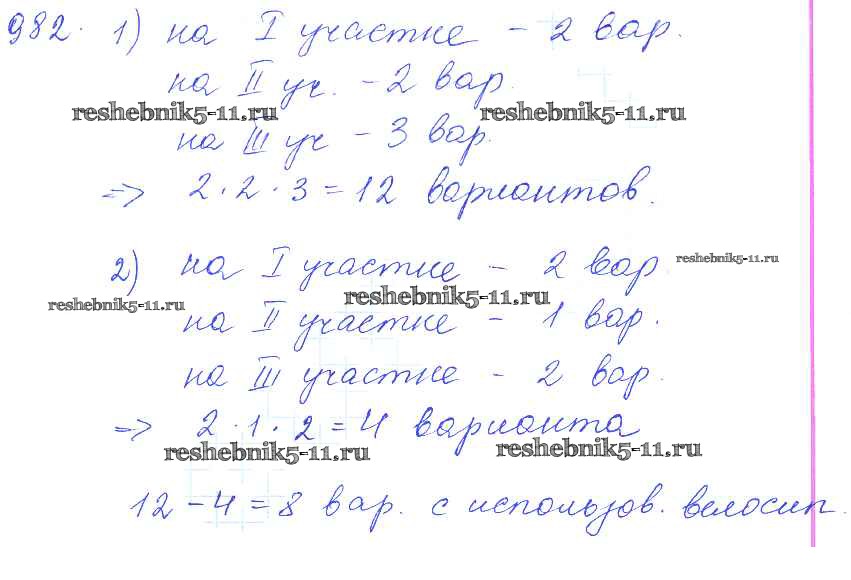 982. 1) на I участке - 2 вар.
на II уч. - 2 вар.
reshebnik5-11.ru reshebnik5-11.ru
на III уч - 3 вар.
=> 2 · 2 · 3 = 12 вариантов.
2) на I участке - 2 вар. reshebnik5-11.ru
reshebnik5-11.ru reshebnik5-11.ru
на II участке - 1 вар.
на III участке - 2 вар.
=> 2 · 1 · 2 = 4 варианта
reshebnik5-11.ru reshebnik5-11.ru
12 - 4 = 8 вар. с использов. велосип.